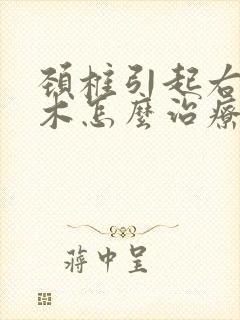 頚椎引起右
木怎麼治療
蔣中呈